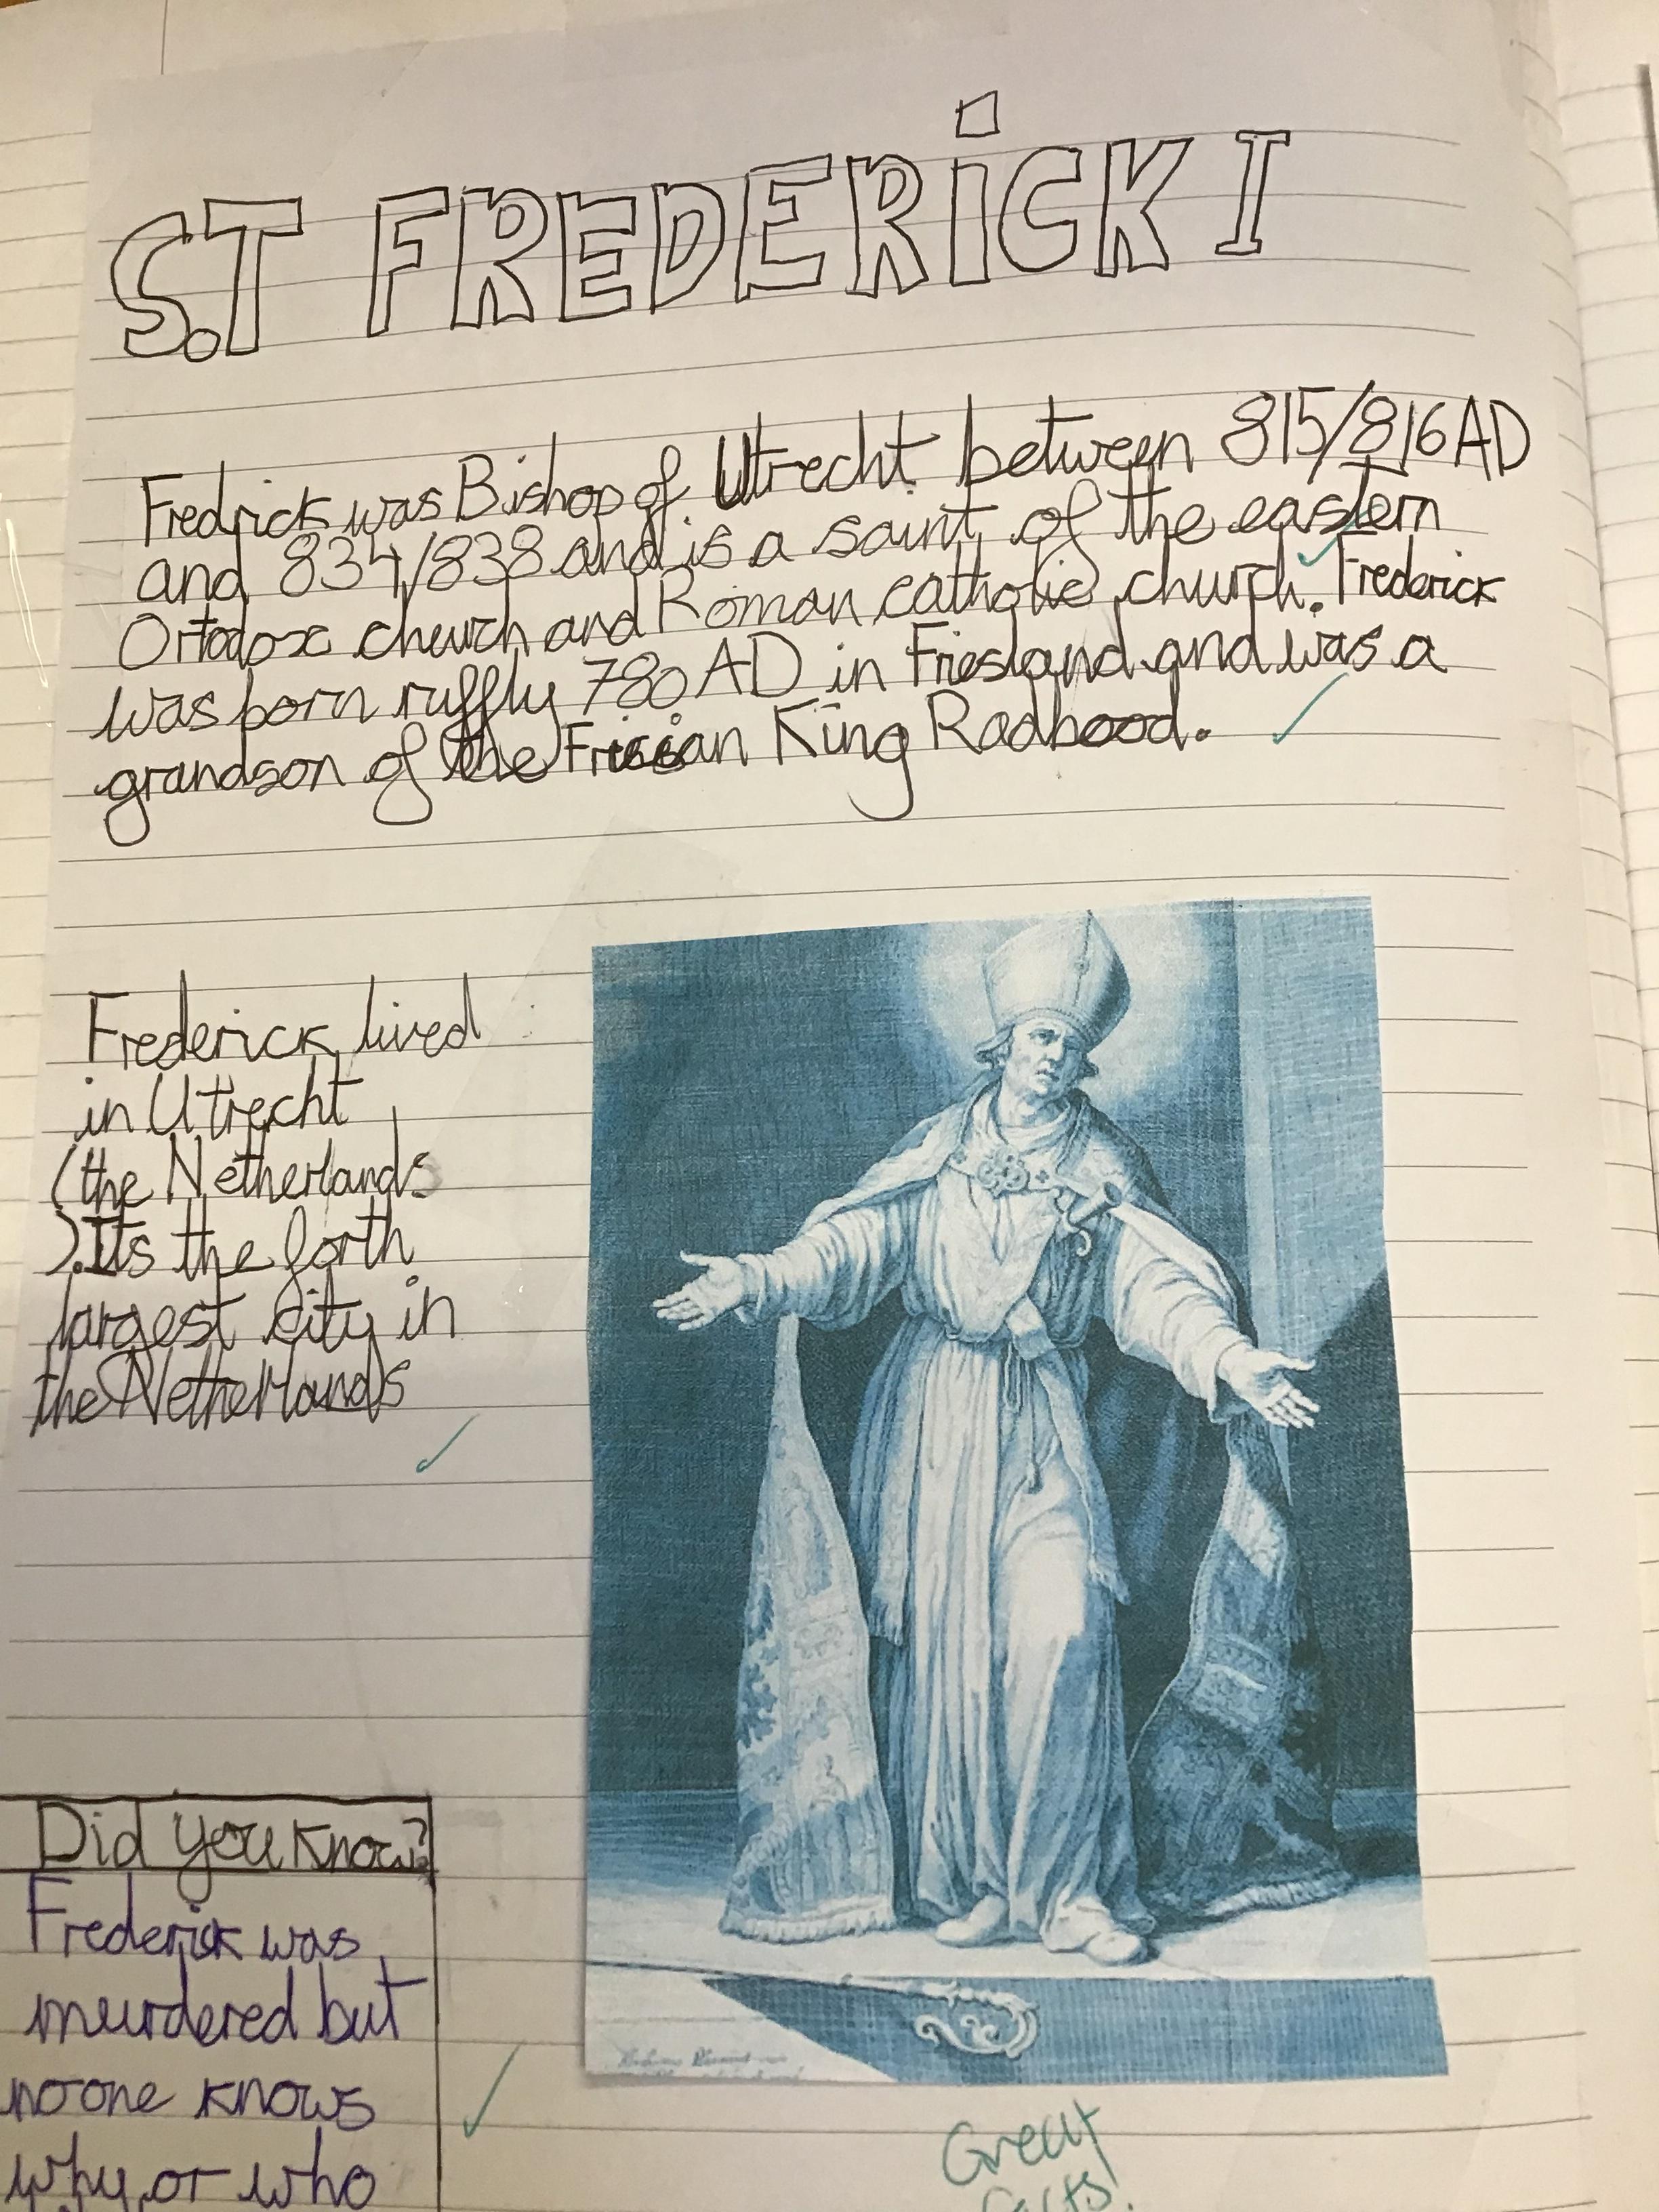 S.T FREDERiCK I
Fredrick was Bishop of Utrecht between 815/816 AD
and 834/838 and is a saint of the eastern
Ortodox church and Roman catholic church. Frederick
was born ruffly 780 AD in Friesland and was a
grandson of the Frisian King Radbood.
Frederick lived
in Utrecht
(the Netherlands
). Its the forth
largest city in
the Netherlands
Did you know?
Frederick was
murdered but
no one knows
why or who
Great
facts.